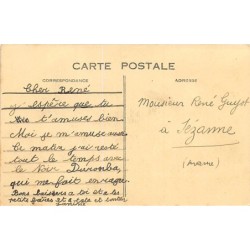 CARTE POSTALE
CORRESPONDANCE
ADRESSE
Cher René
j'espère que tu
t'amuses bien
Moi je m'amuse aussi
Ce matin j'ai resté
tout le temps avec
le Noir
qui me fait enrager.
Bons baisers a toi et a tes
petits frères et a
Monsieur René Guyot
à Sézanne
(Marne)